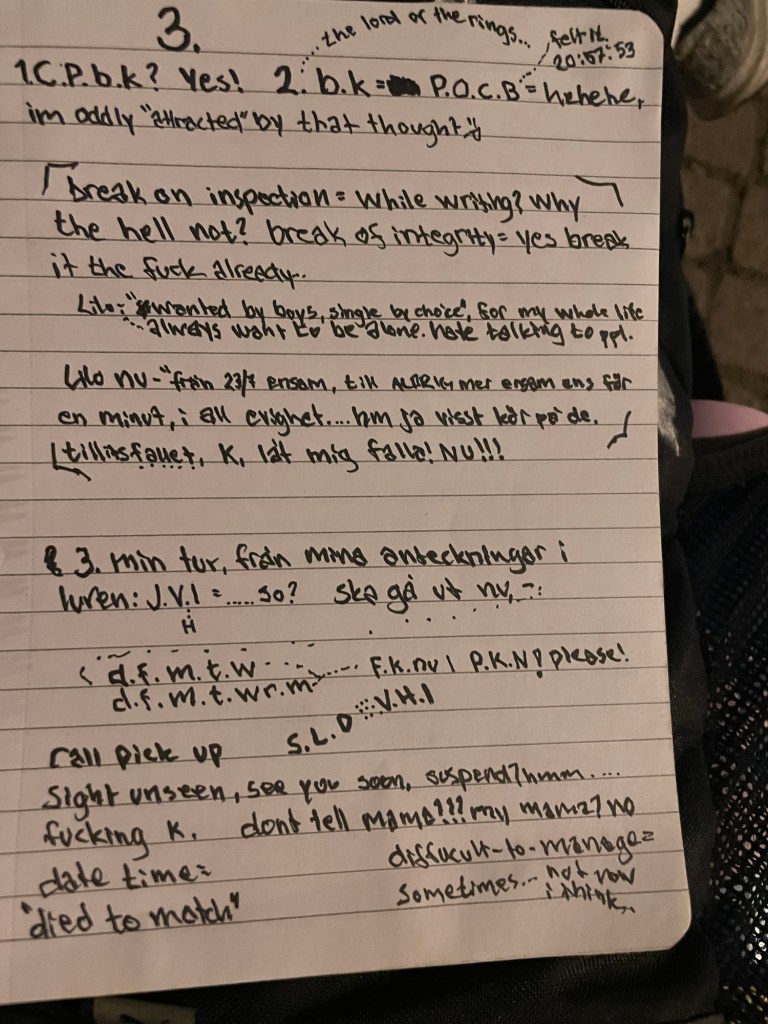 3.
the lord of the rings...
felt it.
20:07:53
1. C.P.b.k? Yes! 2. b.k = P.O.C.B = hehehe,
im oddly "attracted" by that thought
break on inspection = while writing? Why
the hell not? break of integrity = yes break
it the fuck already..
Lilo = "wanted by boys, single by choice", for my whole life
always want to be alone. hate talking to ppl.
Lilo nu - "från 23/7 ensam, till ALDRIG mer ensam ens för
en minut, i all evighet.... hm ja visst kör på de.
K, låt mig falla! NU!!!
3. min tur, från mina anteckningar i
luren: J.V.I = ..... so? ska gå ut nu, -:
H
d.f.m.t.w ..... F.K.nu! P.K.N? please!
d.f.m.t.w r.m
S.L.D V.H.I
call pick up
Sight unseen, see you soon, suspend? hmm....
fucking K. dont tell mama!!! my mama? no
date time= diffucult-to-manage=
"died to match" sometimes... not now
i think..